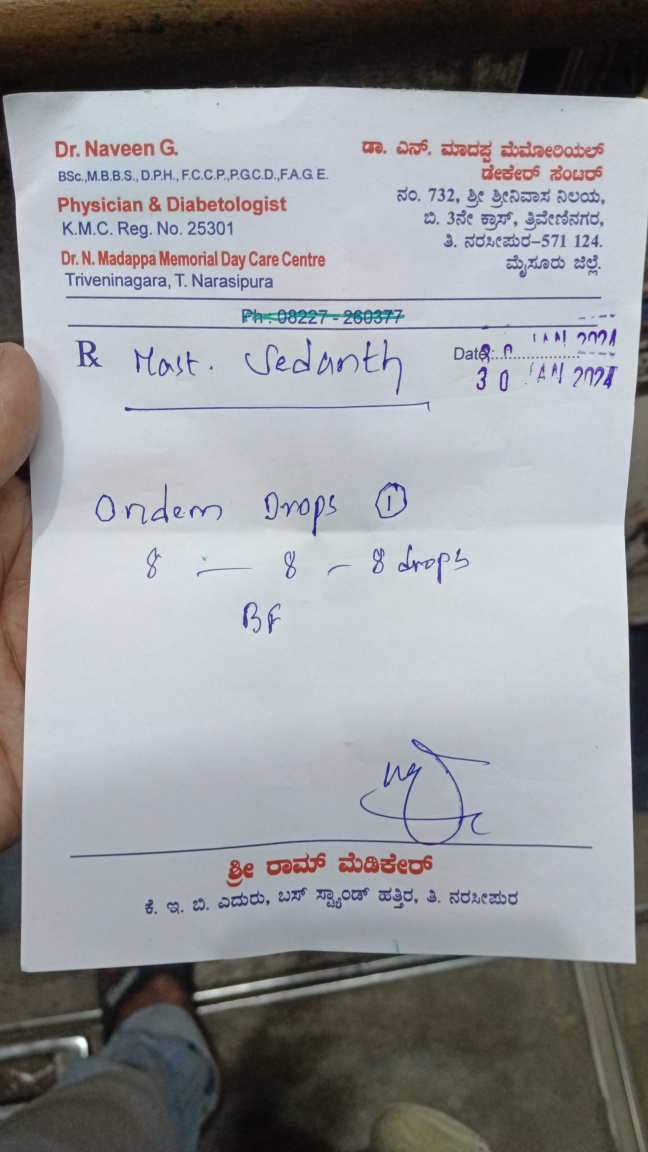 Dr. Naveen G.
BSc.,M.B.B.S., D.P.H., F.C.C.P.,P.G.C.D.,F.A.G.E.
Physician & Diabetologist
K.M.C. Reg. No. 25301
Dr. N. Madappa Memorial Day Care Centre
Triveninagara, T. Narasipura
ಡಾ. ಎನ್. ಮಾದಪ್ಪ ಮೆಮೋರಿಯಲ್
ಡೇಕೇರ್ ಸೆಂಟರ್
ನಂ. 732, ಶ್ರೀ ಶ್ರೀನಿವಾಸ ನಿಲಯ,
ಬಿ. 3ನೇ ಕ್ರಾಸ್, ತ್ರಿವೇಣಿನಗರ,
ತಿ. ನರಸೀಪುರ–571 124.
ಮೈಸೂರು ಜಿಲ್ಲೆ.
Ph : 08227 - 260377
Rx Mast. Vedanth
Date:
30 JAN 2024
Ondem Drops 1
8 — 8 – 8 drops
BF
ಶ್ರೀ ರಾಮ್ ಮೆಡಿಕೇರ್
ಕೆ. ಇ. ಬಿ. ಎದುರು, ಬಸ್ ಸ್ಟ್ಯಾಂಡ್ ಹತ್ತಿರ, ತಿ. ನರಸೀಪುರ